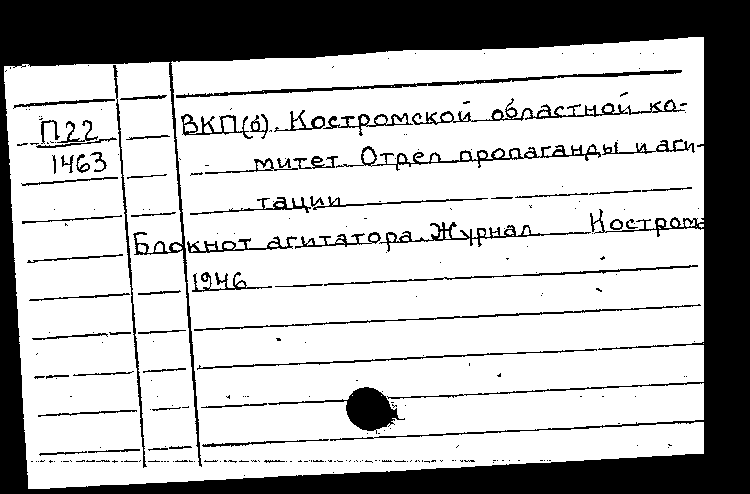 П22
1463
ВКП(б). Костромской областной ко-
митет. Отдел пропаганды и аги-
тации
Блокнот агитатора. Журнал. Кострома
1946